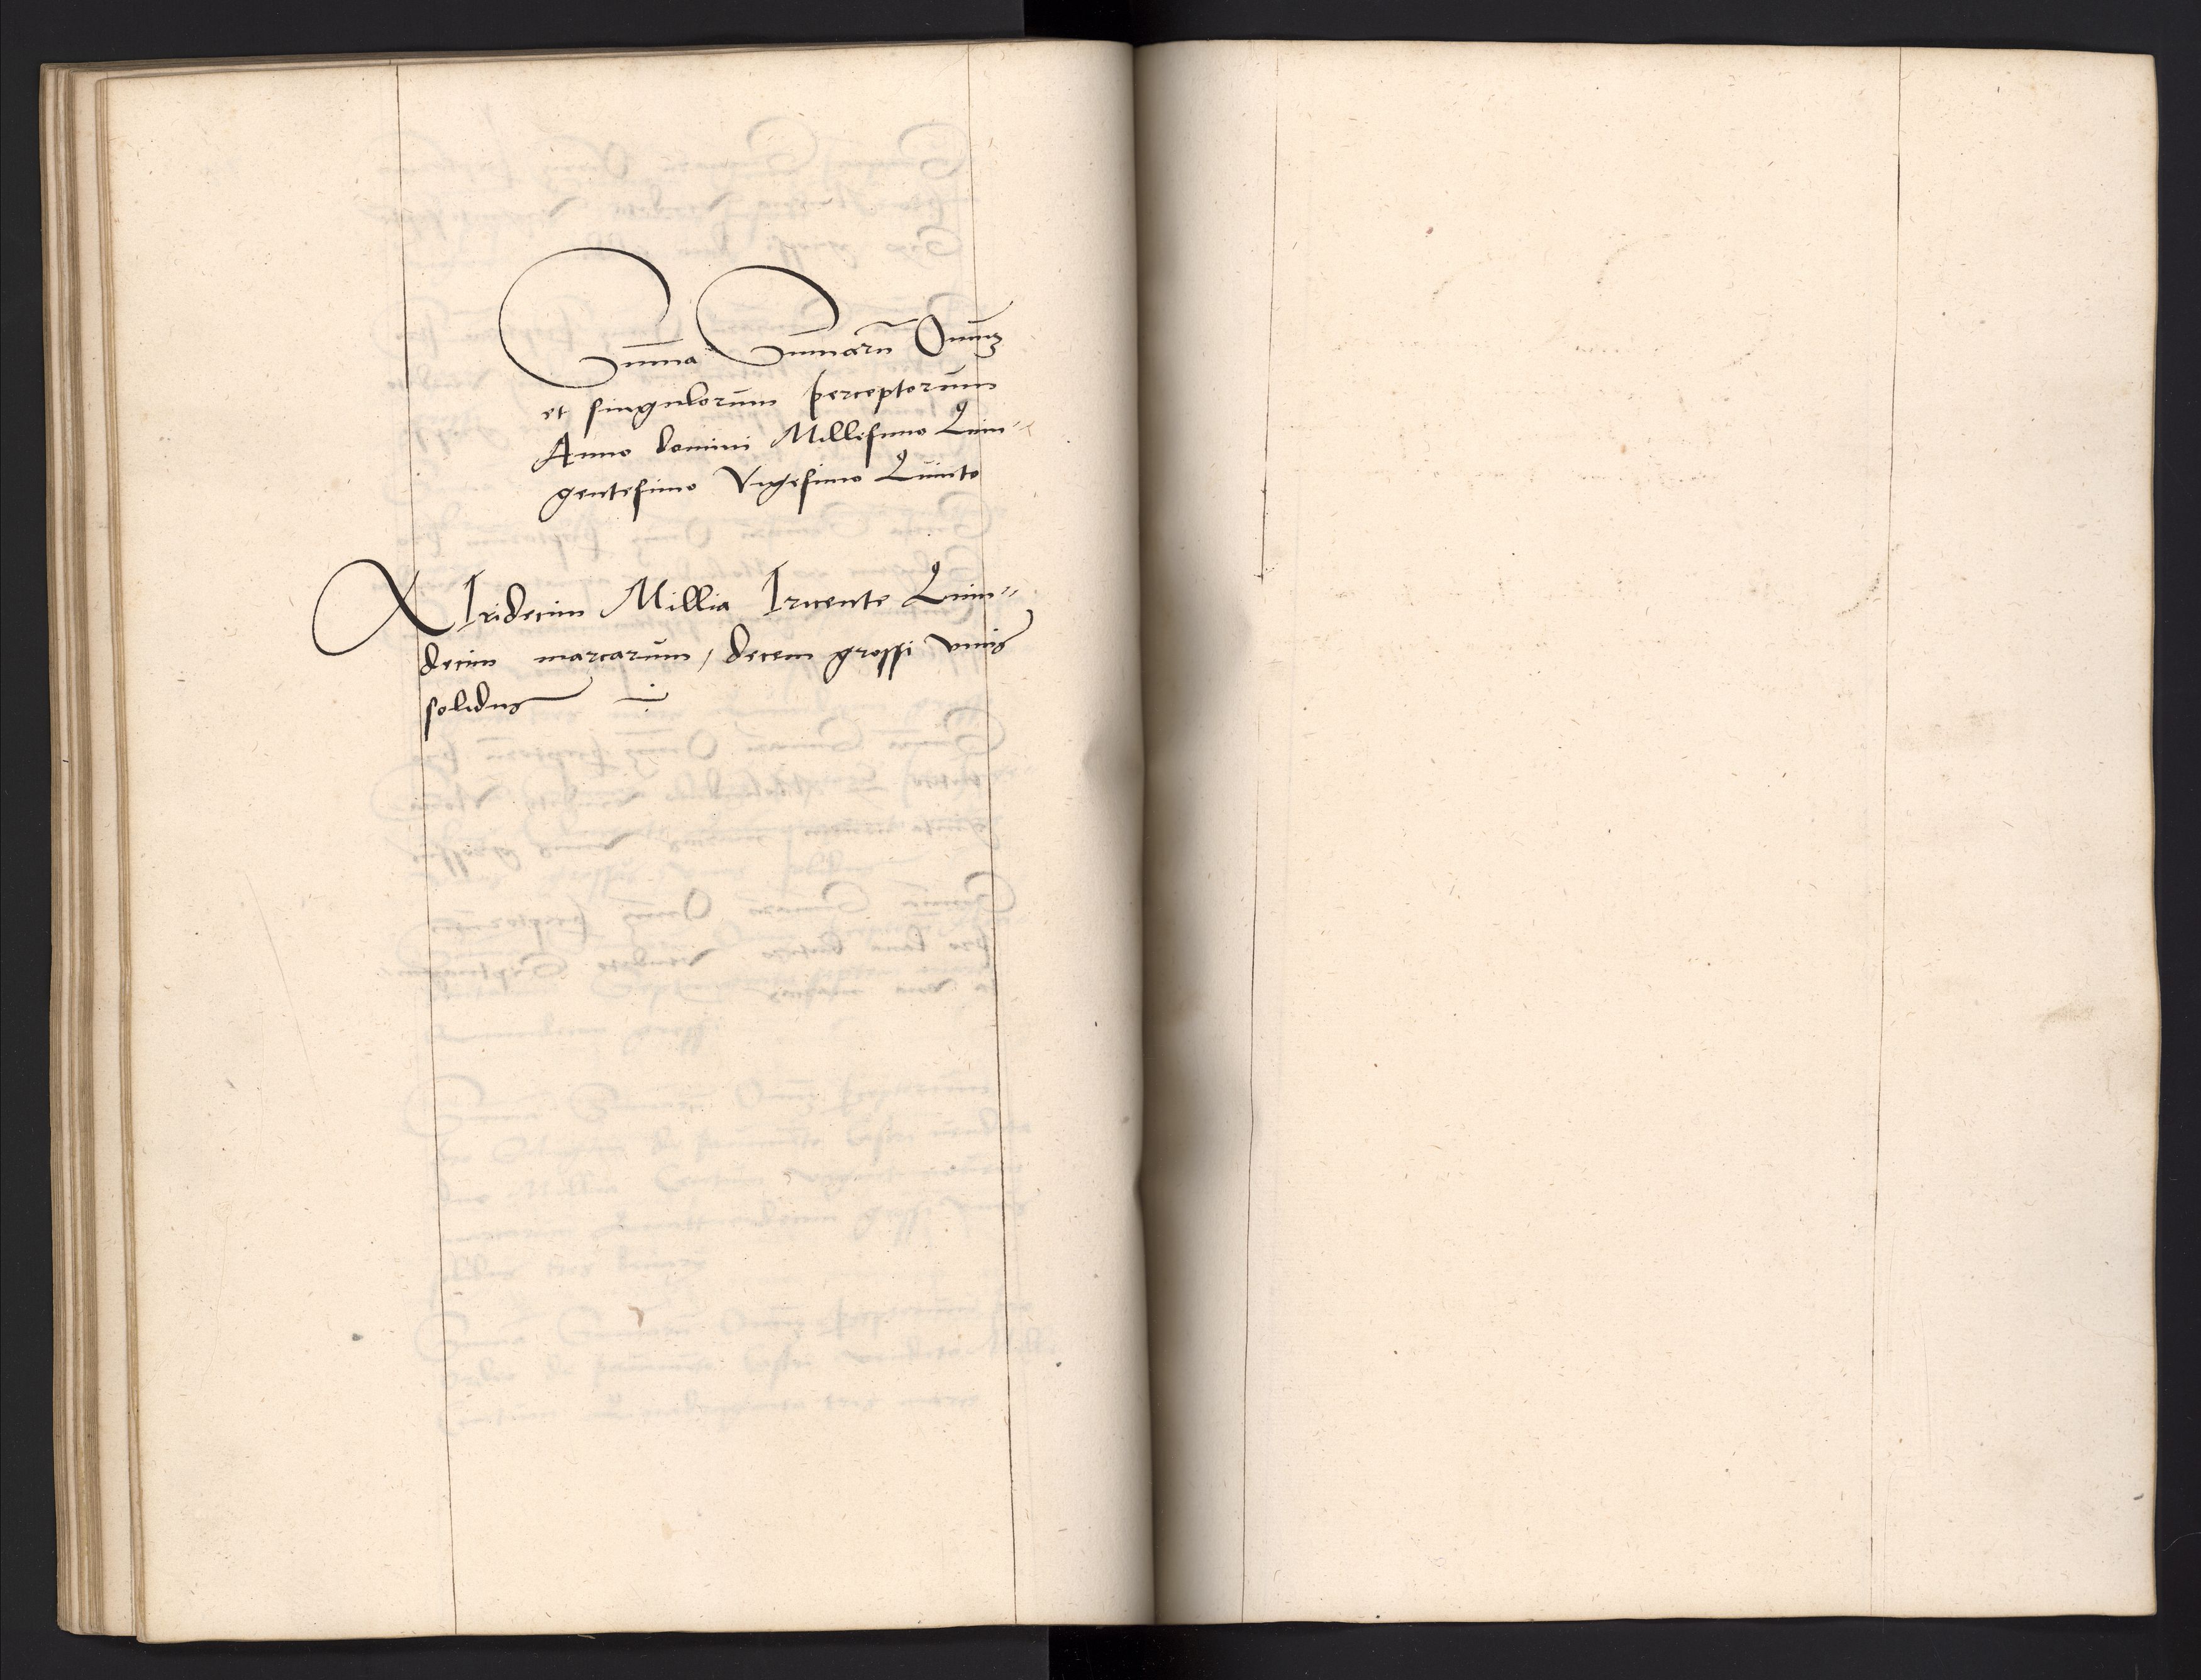 Sum̄a Sumarū Omnīuꝫ
et singulorum perceptorum
Anno domini Millesimo Quin⸗
gentesimo Vigesimo Quinto
Tridecim Millia Tricente Quin⸗
decim marcarum / decem grossi vnus
solidus